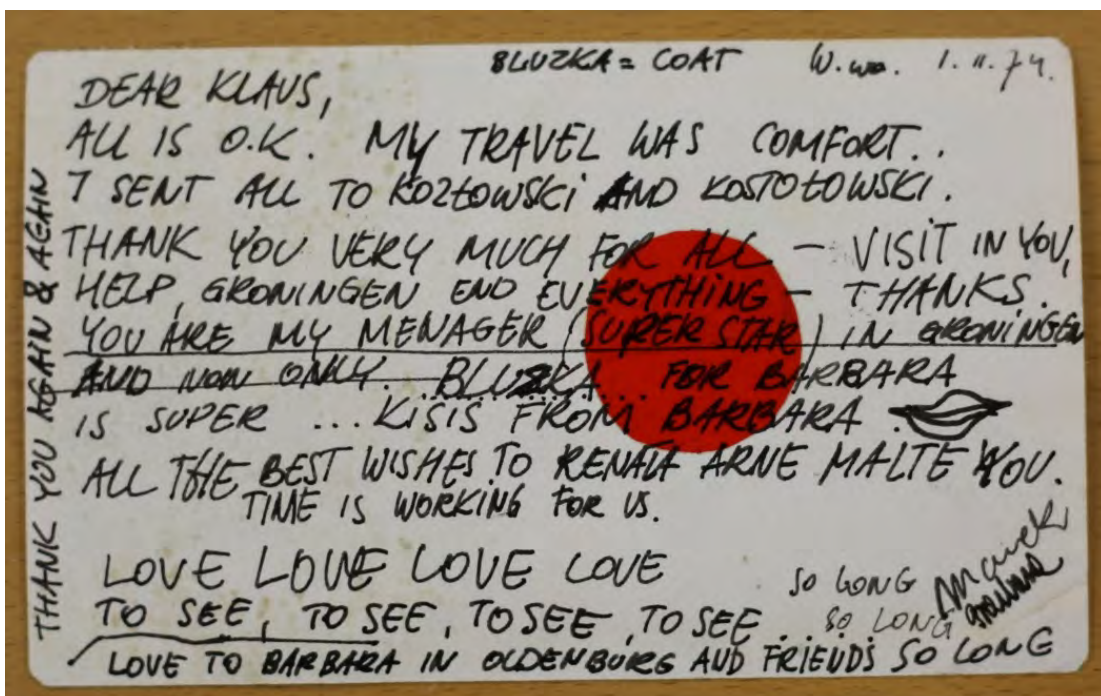 BLUZKA = COAT W.wa. 1.11.74.
DEAR KLAUS,
ALL IS O.K. MY TRAVEL WAS COMFORT..
I SENT ALL TO KOZŁOWSKI AND KOSTOŁOWSKI.
THANK YOU VERY MUCH FOR ALL – VISIT IN YOU,
HELP, GRONINGEN END EVERYTHING – THANKS.
YOU ARE MY MENAGER (SUPER STAR) IN GRONINGEN
AND NON ONLY. BLUZKA... FOR BARBARA
IS SUPER ... KISIS FROM BARBARA.
ALL THE BEST WISHES TO RENATA ARNE MALTE YOU.
TIME IS WORKING FOR US.
LOVE LOVE LOVE LOVE
TO SEE, TO SEE, TO SEE, TO SEE...
SO LONG
SO LONG
LOVE TO BARBARA IN OLDENBURG AND FRIENDS SO LONG
THANK YOU AGAIN & AGAIN